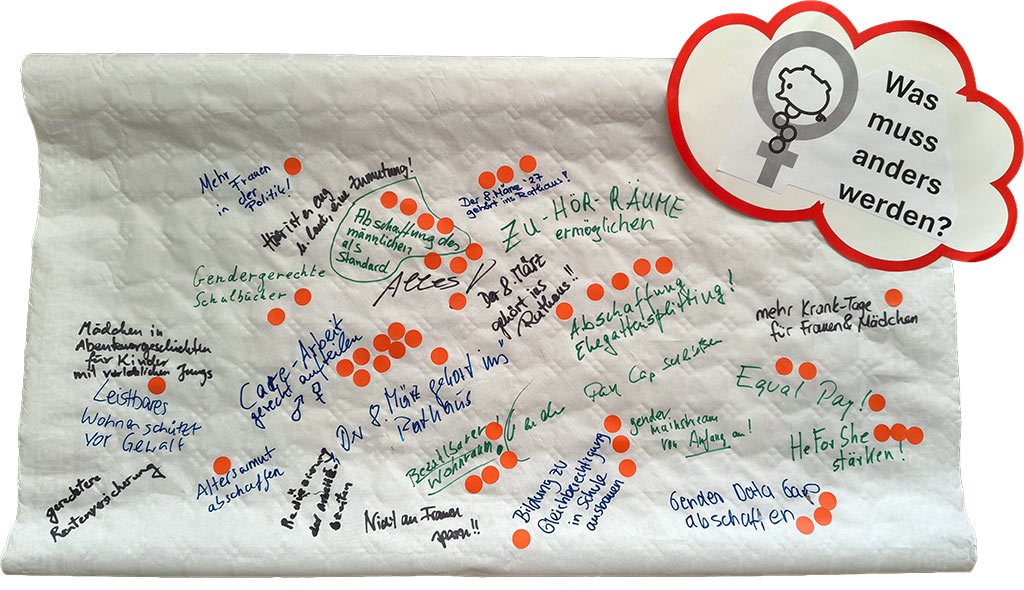 Was
muss
anders
werden?
Mehr
Frauen
in der
Politik!
Hier ist es eng
& laut, eine Zumutung!
Der 8. März '27
gehört ins Rathaus!!
Abschaffung des
männlichen
als
Standard
ZU-HÖR-RÄUME
ermöglichen
Gendergerechte
Schulbücher
Alles!
Der 8. März
gehört ins
Rathaus!!
Abschaffung
Ehegattensplitting!
mehr Krank-Tage
für Frauen & Mädchen
Mädchen in
Abenteuergeschichten
für Kinder
mit verletzlichen Jungs
Care-Arbeit
gerecht aufteilen
♂ ♀
Der 8. März gehört ins
Rathaus
Pay Gap
Equal Pay!
Leistbares
Wohnen schützt
vor Gewalt
Bezahlbarer
Wohnraum!
gender
mainstream
von Anfang an!
HeForShe
stärken!
gerechtere
Rentenversicherung
Altersarmut
abschaffen
der
Nicht an Frauen
sparen!!
Bildung zu
Gleichberechtigung
in Schule
ausbauen
Gender Data Gap
abschaffen